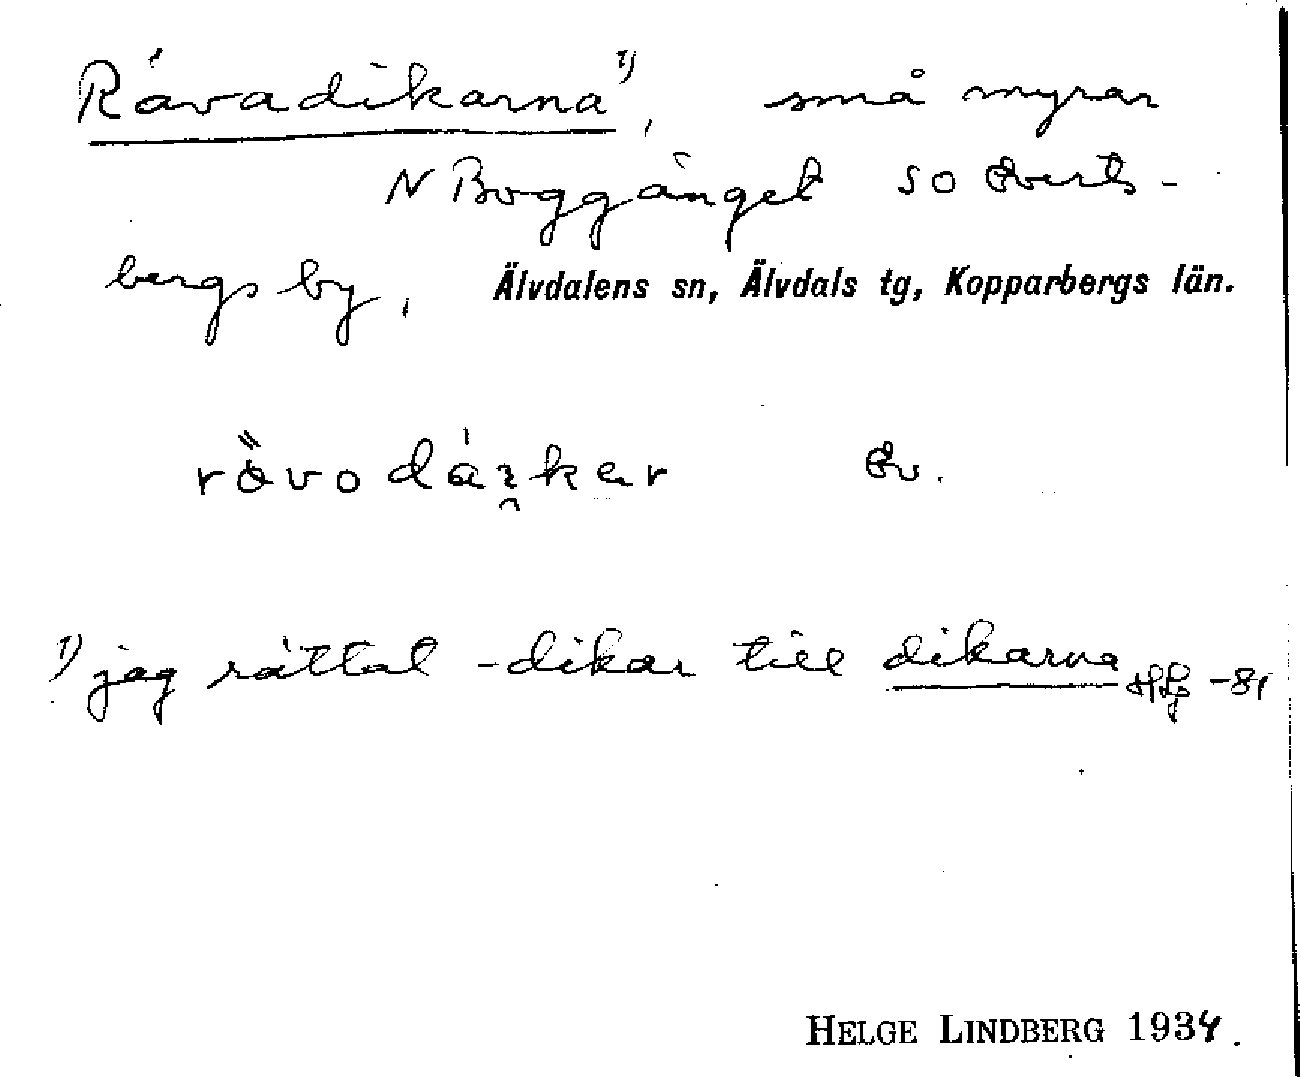 Rävadikarna 1),  små myrar
N Boggänget  so Everts-
bergs by,  Älvdalens sn, Älvdals tg, Kopparbergs län.
Ev.
1) jag rättat -dikar till dikarna -81
HELGE LINDBERG 1934.